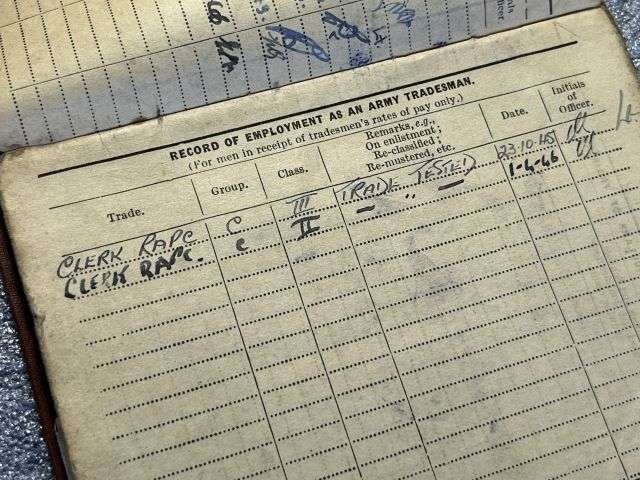 RECORD OF EMPLOYMENT AS AN ARMY TRADESMAN.
(For men in receipt of tradesmen's rates of pay only.)
Trade. Group. Class. Remarks, e.g., On enlistment; Re-classified; Re-mustered, etc. Date. Initials of Officer.
CLERK RAPC C III TRADE TESTED 23.10.45
CLERK RAPC. C II — " — 1-4-46